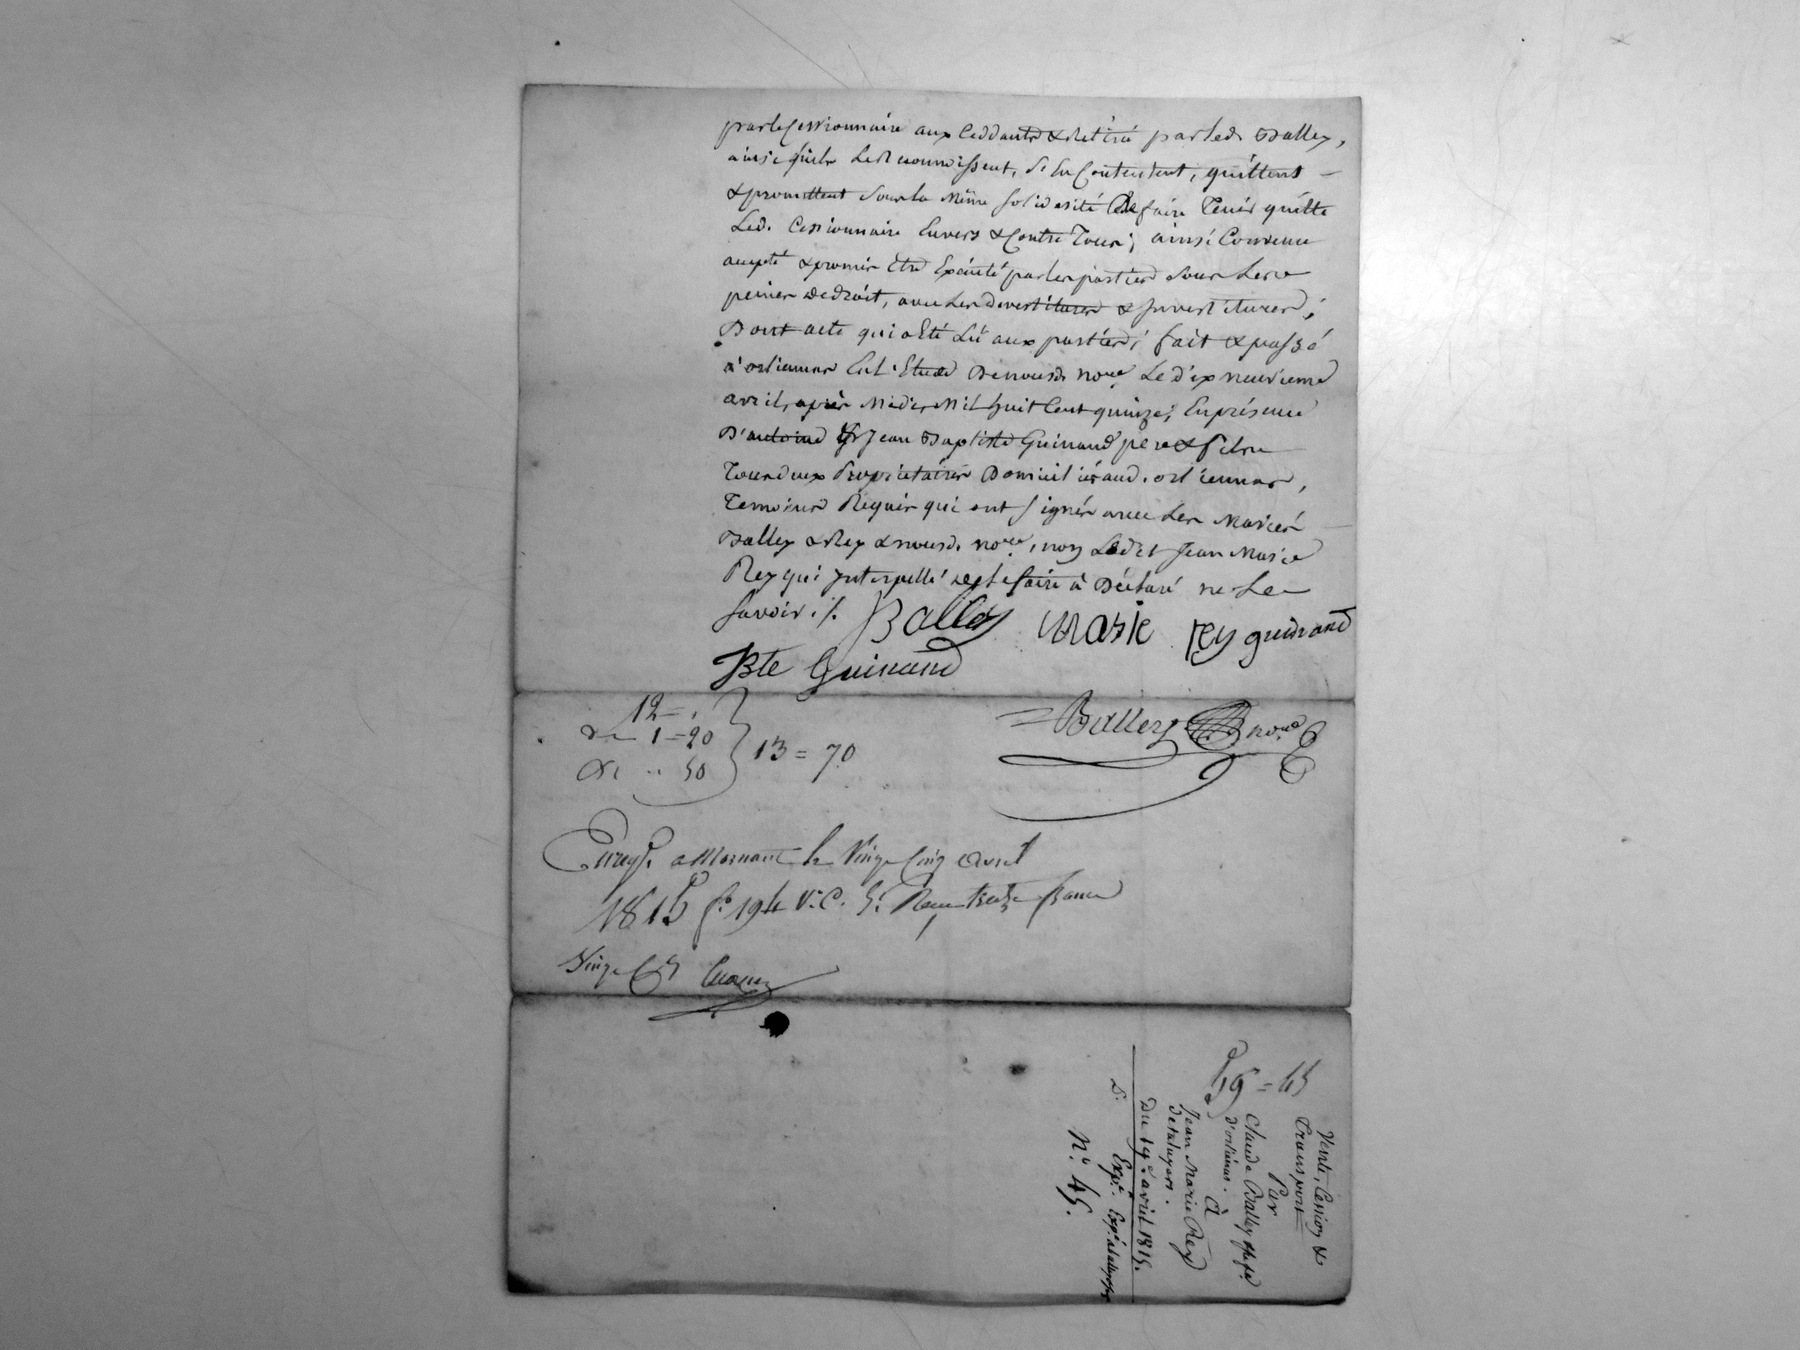 par le Cessionnaire aux Ceddants & Retiré par led. Balley,
ainsi qu'ils le Reconnoissent, S'en Contentent, quittent
& promettent Sous la Même Solidarité De faire Tenir quitte
Led. Cessionnaire Envers & Contre Tous; ainsi Convenu
accepté & promis Etre Exécuté par les parties Sous les
peines de droit, avec les devestitures & Investitures;
Dont acte qui a Eté Lu aux parties; fait & passé
à orlienas En L'Etude De nousd. nore. Le dix neuvieme
avril, après Midi, Mil huit Cent quinze; En présence
D'antoine & Jean Baptiste Guinand pere & fils
Tous deux Propriétaires Domiciliés aud. orlienas,
Temoins Requis qui ont Signés avec les Mariés
Balley & Rey & nousd. nore., non Ledit Jean Marie
Rey qui Interpellé de le faire à Déclaré ne Le
Savoir ./. Balley Marie Rey guinand
JBte Guinand
12 = .
& 1 = 20
& .. 50
13 = 70
Balley nore
Enregé. a Mornant le Vingt Cinq Avril
1815 fo. 194 Vo. C. 5. Reçu Treize francs
Vingt
59 = 45
Vente, Cession &
Transport
Par
Claude Balley & sa fe.
d'orlienas.
À
Jean Marie Rey
de taluyers.
Du 19e. avril 1815.
Expé.
No. 45.